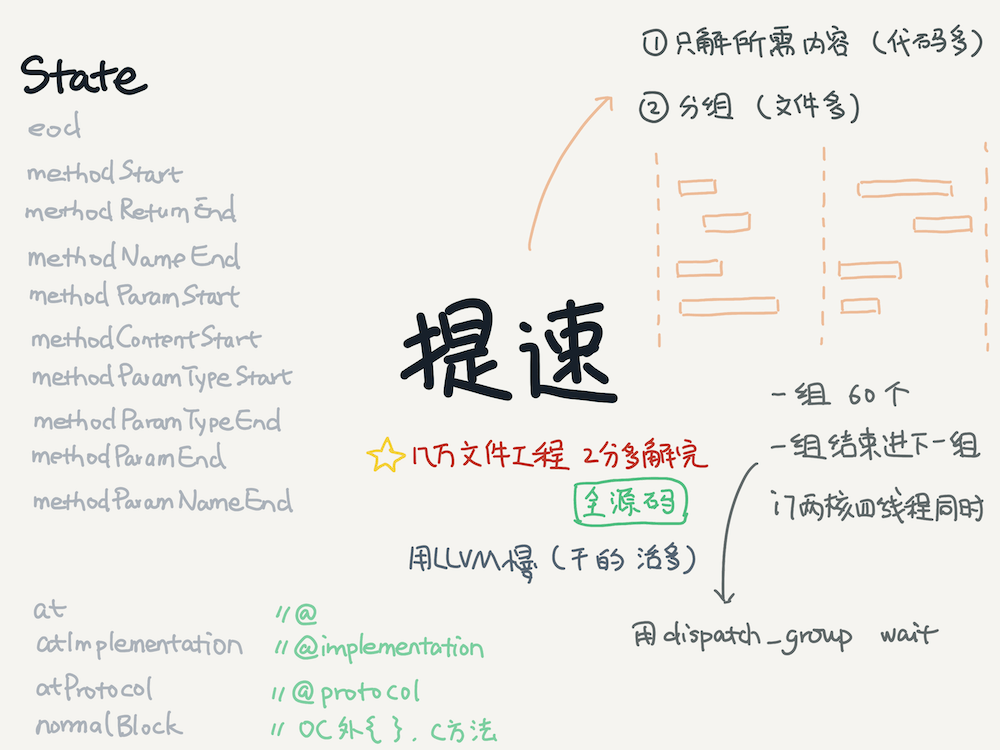 State
eod
methodStart
methodReturnEnd
methodNameEnd
methodParamStart
methodContentStart
methodParamTypeStart
methodParamTypeEnd
methodParamEnd
methodParamNameEnd
at //@
atImplementation //@implementation
atProtocol //@protocol
normalBlock // OC外{}. C方法
提速
几万文件工程 2分多解完
全源码
用LLVM慢(干的活多)
①只解所需内容(代码多)
②分组(文件多)
一组 60个
一组结束进下一组
i7两核四线程同时
用dispatch_group wait